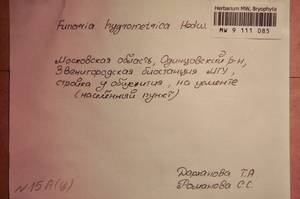 Herbarium MW, Bryophyta
MW 9 111 085
Funaria hygrometrica Hedw.
Московская область, Одинцовский р-н,
Звенигородская биостанция МГУ,
стройка у общежития, на цементе
(населённый пункт)
Дарханова Т.А
Романова С.С.
N15A(4)